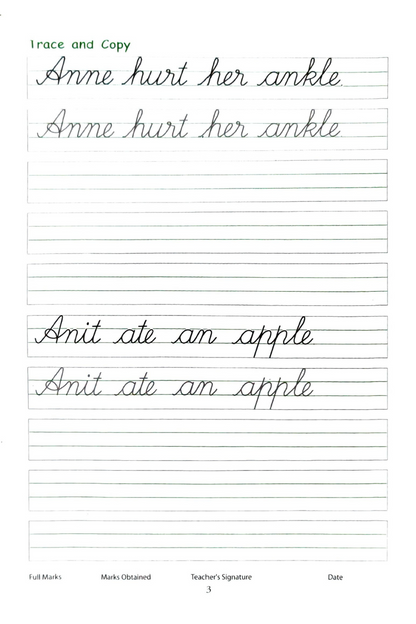 Trace and Copy
Anne hurt her ankle.
Anne hurt her ankle.
Anit ate an apple
Anit ate an apple
Full Marks Marks Obtained Teacher's Signature Date
3